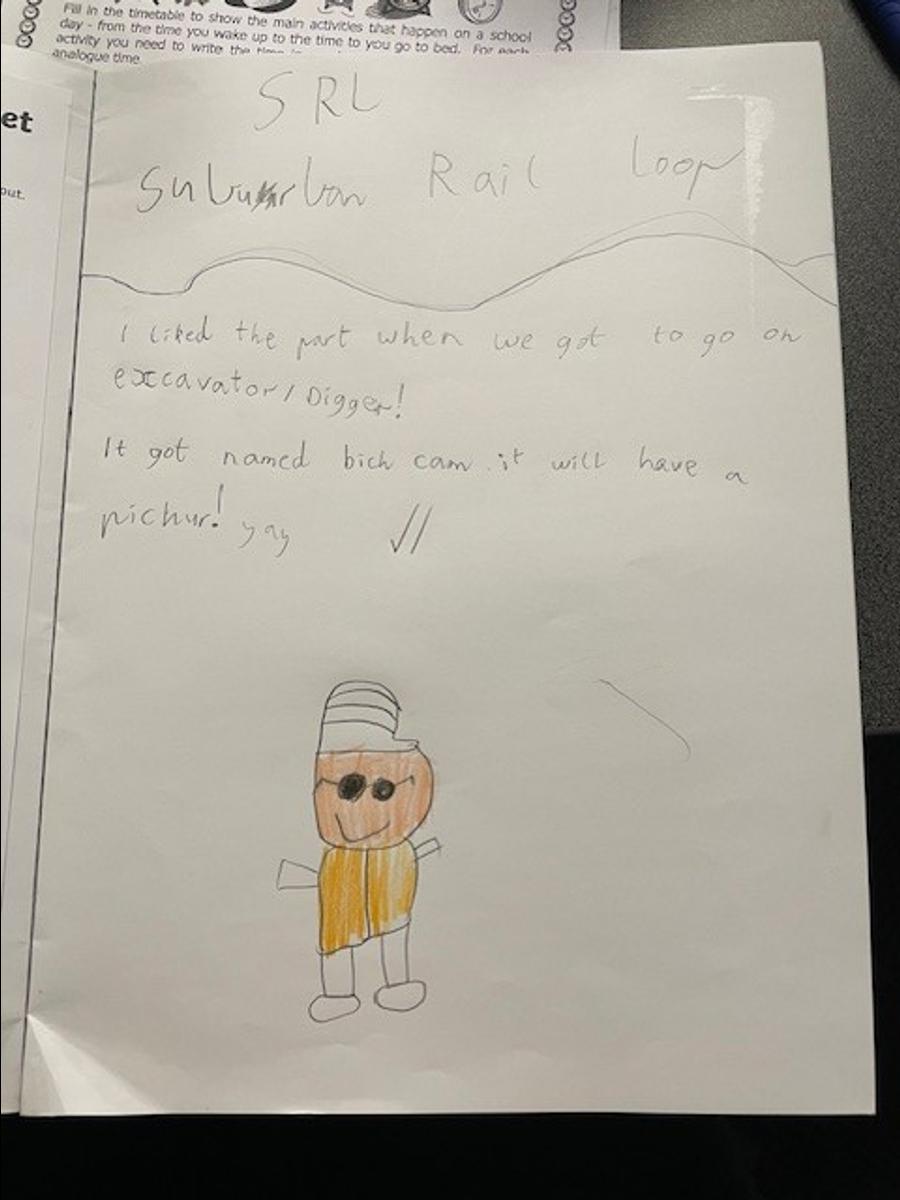 Fill in the timetable to show the main activities that happen on a school
day - from the time you wake up to the time to you go to bed. For each
activity you need to write the time in
analogue time.
et
out.
SRL
Suburban Rail Loop
I liked the part when we got to go on
excavator/Digger!
It got named bich cam it will have a
pichur! yay